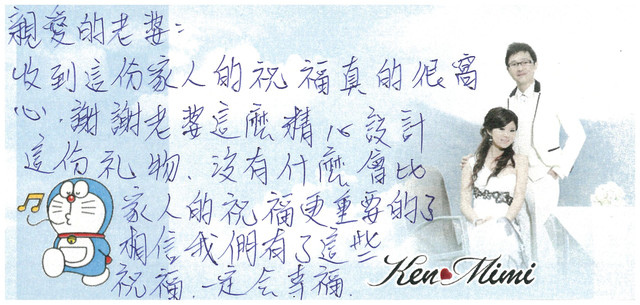 親愛的老婆:
收到這份家人的祝福真的很窩
心.謝謝老婆這麼精心設計
這份礼物.沒有什麼會比
家人的祝福更重要的了
相信我們有了這些
祝福.一定会幸福.
Ken Mimi